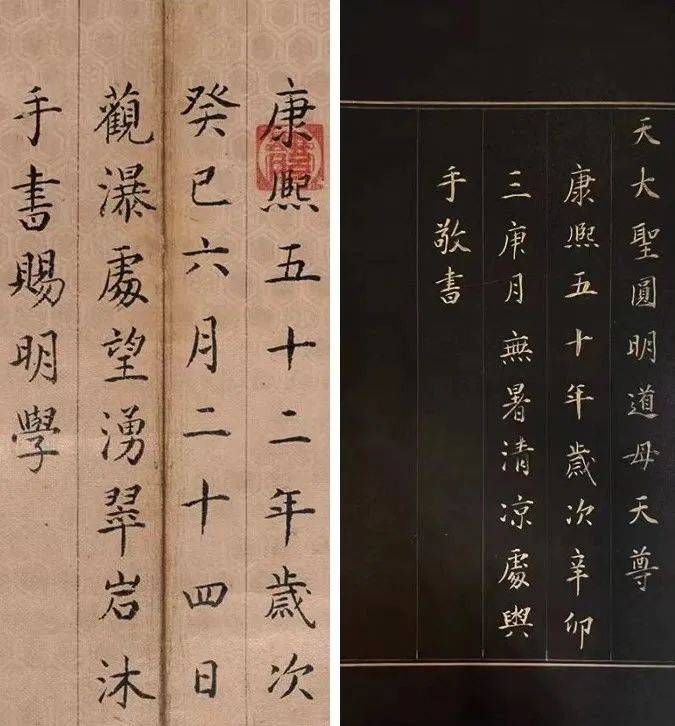 康熙五十二年歲次
癸巳六月二十四日
觀瀑處望湧翠岩沐
手書賜明學
天大聖圓明道母天尊
康熙五十年歲次辛卯
三庚月無暑清凉處盥
手敬書